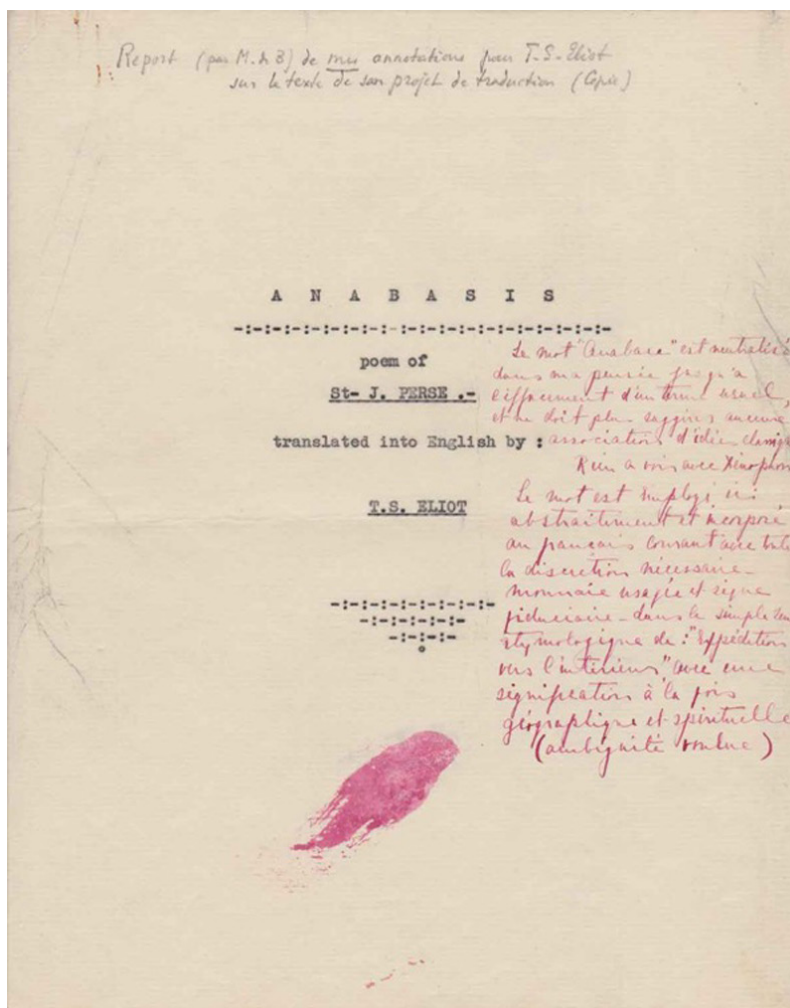 Report (par M. de B) de mes annotations pour T. S. Eliot
sur le texte de son projet de traduction (Copie)
A N A B A S I S
-:-:-:-:-:-:-:-:-:-:-:-:-:-:-:-:-:-:-:-
poem of
St- J. PERSE .-
translated into English by :
T.S. ELIOT
-:-:-:-:-:-:-:-:-
-:-:-:-:-:-
-:-:-:-
Le mot "Anabase" est neutralisé
dans ma pensée jusqu'à
l'effacement d'un terme usuel,
et ne doit plus suggérer aucune
association d'idées
Rien à voir avec Xénophon
Le mot est employé ici
abstraitement et incorporé
au français courant avec toute
la discrétion nécessaire -
monnaie usagée et signe
fiduciaire - dans le simple sens
étymologique de : "Expédition
vers l'intérieur" avec une
signification à la fois
géographique et spirituelle
(ambiguité voulue)